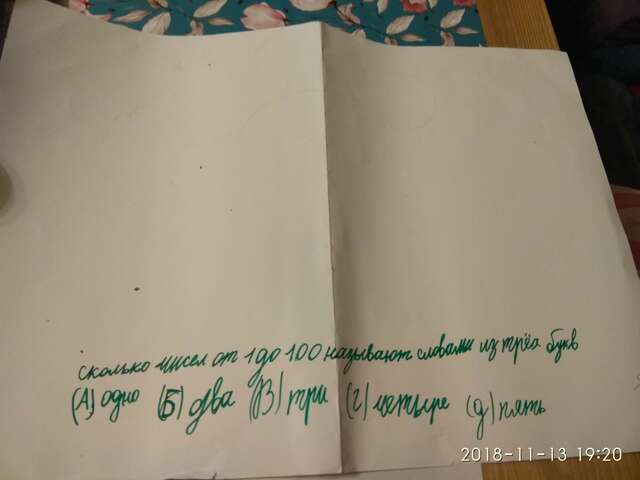 сколько чисел от 1 до 100 называют словами из трёх букв
(А) одно (Б) два (В) три (г) четыре (д) пять
2018-11-13 19:20